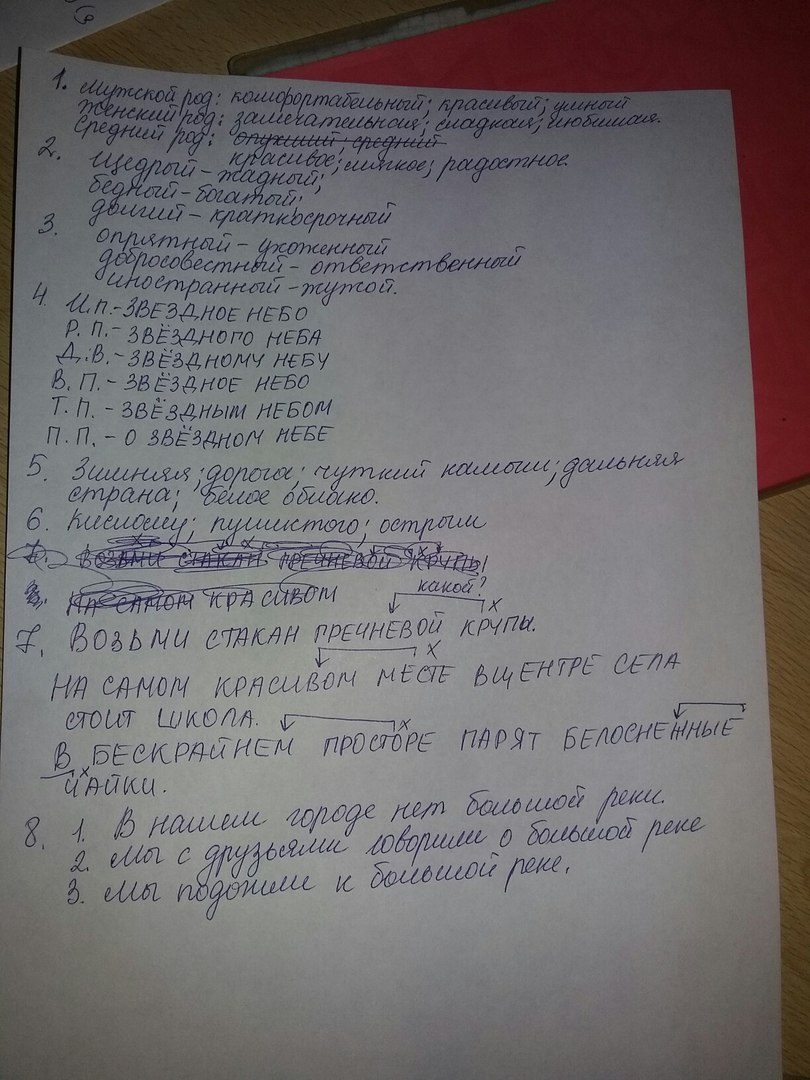 1. Мужской род: комфортабельный; красивый; умный
Женский род: замечательная; сладкая; любимая.
Средний род: опухший; средний
красивое; мягкое; радостное.
2. Щедрый – жадный;
бедный – богатый;
долгий – краткосрочный
3. опрятный – ухоженный
добросовестный – ответственный
иностранный – чужой.
4. И.П. – ЗВЕЗДНОЕ НЕБО
Р.П. – ЗВЁЗДНОГО НЕБА
Д.В. – ЗВЁЗДНОМУ НЕБУ
В.П. – ЗВЁЗДНОЕ НЕБО
Т.П. – ЗВЁЗДНЫМ НЕБОМ
П.П. – О ЗВЁЗДНОМ НЕБЕ
5. Зимняя; дорога; чуткий камыш; дальняя
страна; белое облако.
6. Кислому; пушистого; острым
7. ВОЗЬМИ СТАКАН ГРЕЧНЕВОЙ КРУПЫ
НА САМОМ КРАСИВОМ
какой?
7. ВОЗЬМИ СТАКАН ГРЕЧНЕВОЙ КРУПЫ.
НА САМОМ КРАСИВОМ МЕСТЕ В ЦЕНТРЕ СЕЛА
СТОИТ ШКОЛА.
В БЕСКРАЙНЕМ ПРОСТОРЕ ПАРЯТ БЕЛОСНЕЖНЫЕ
ЧАЙКИ.
8. 1. В нашем городе нет большой реки.
2. Мы с друзьями говорили о большой реке
3. Мы подошли к большой реке.